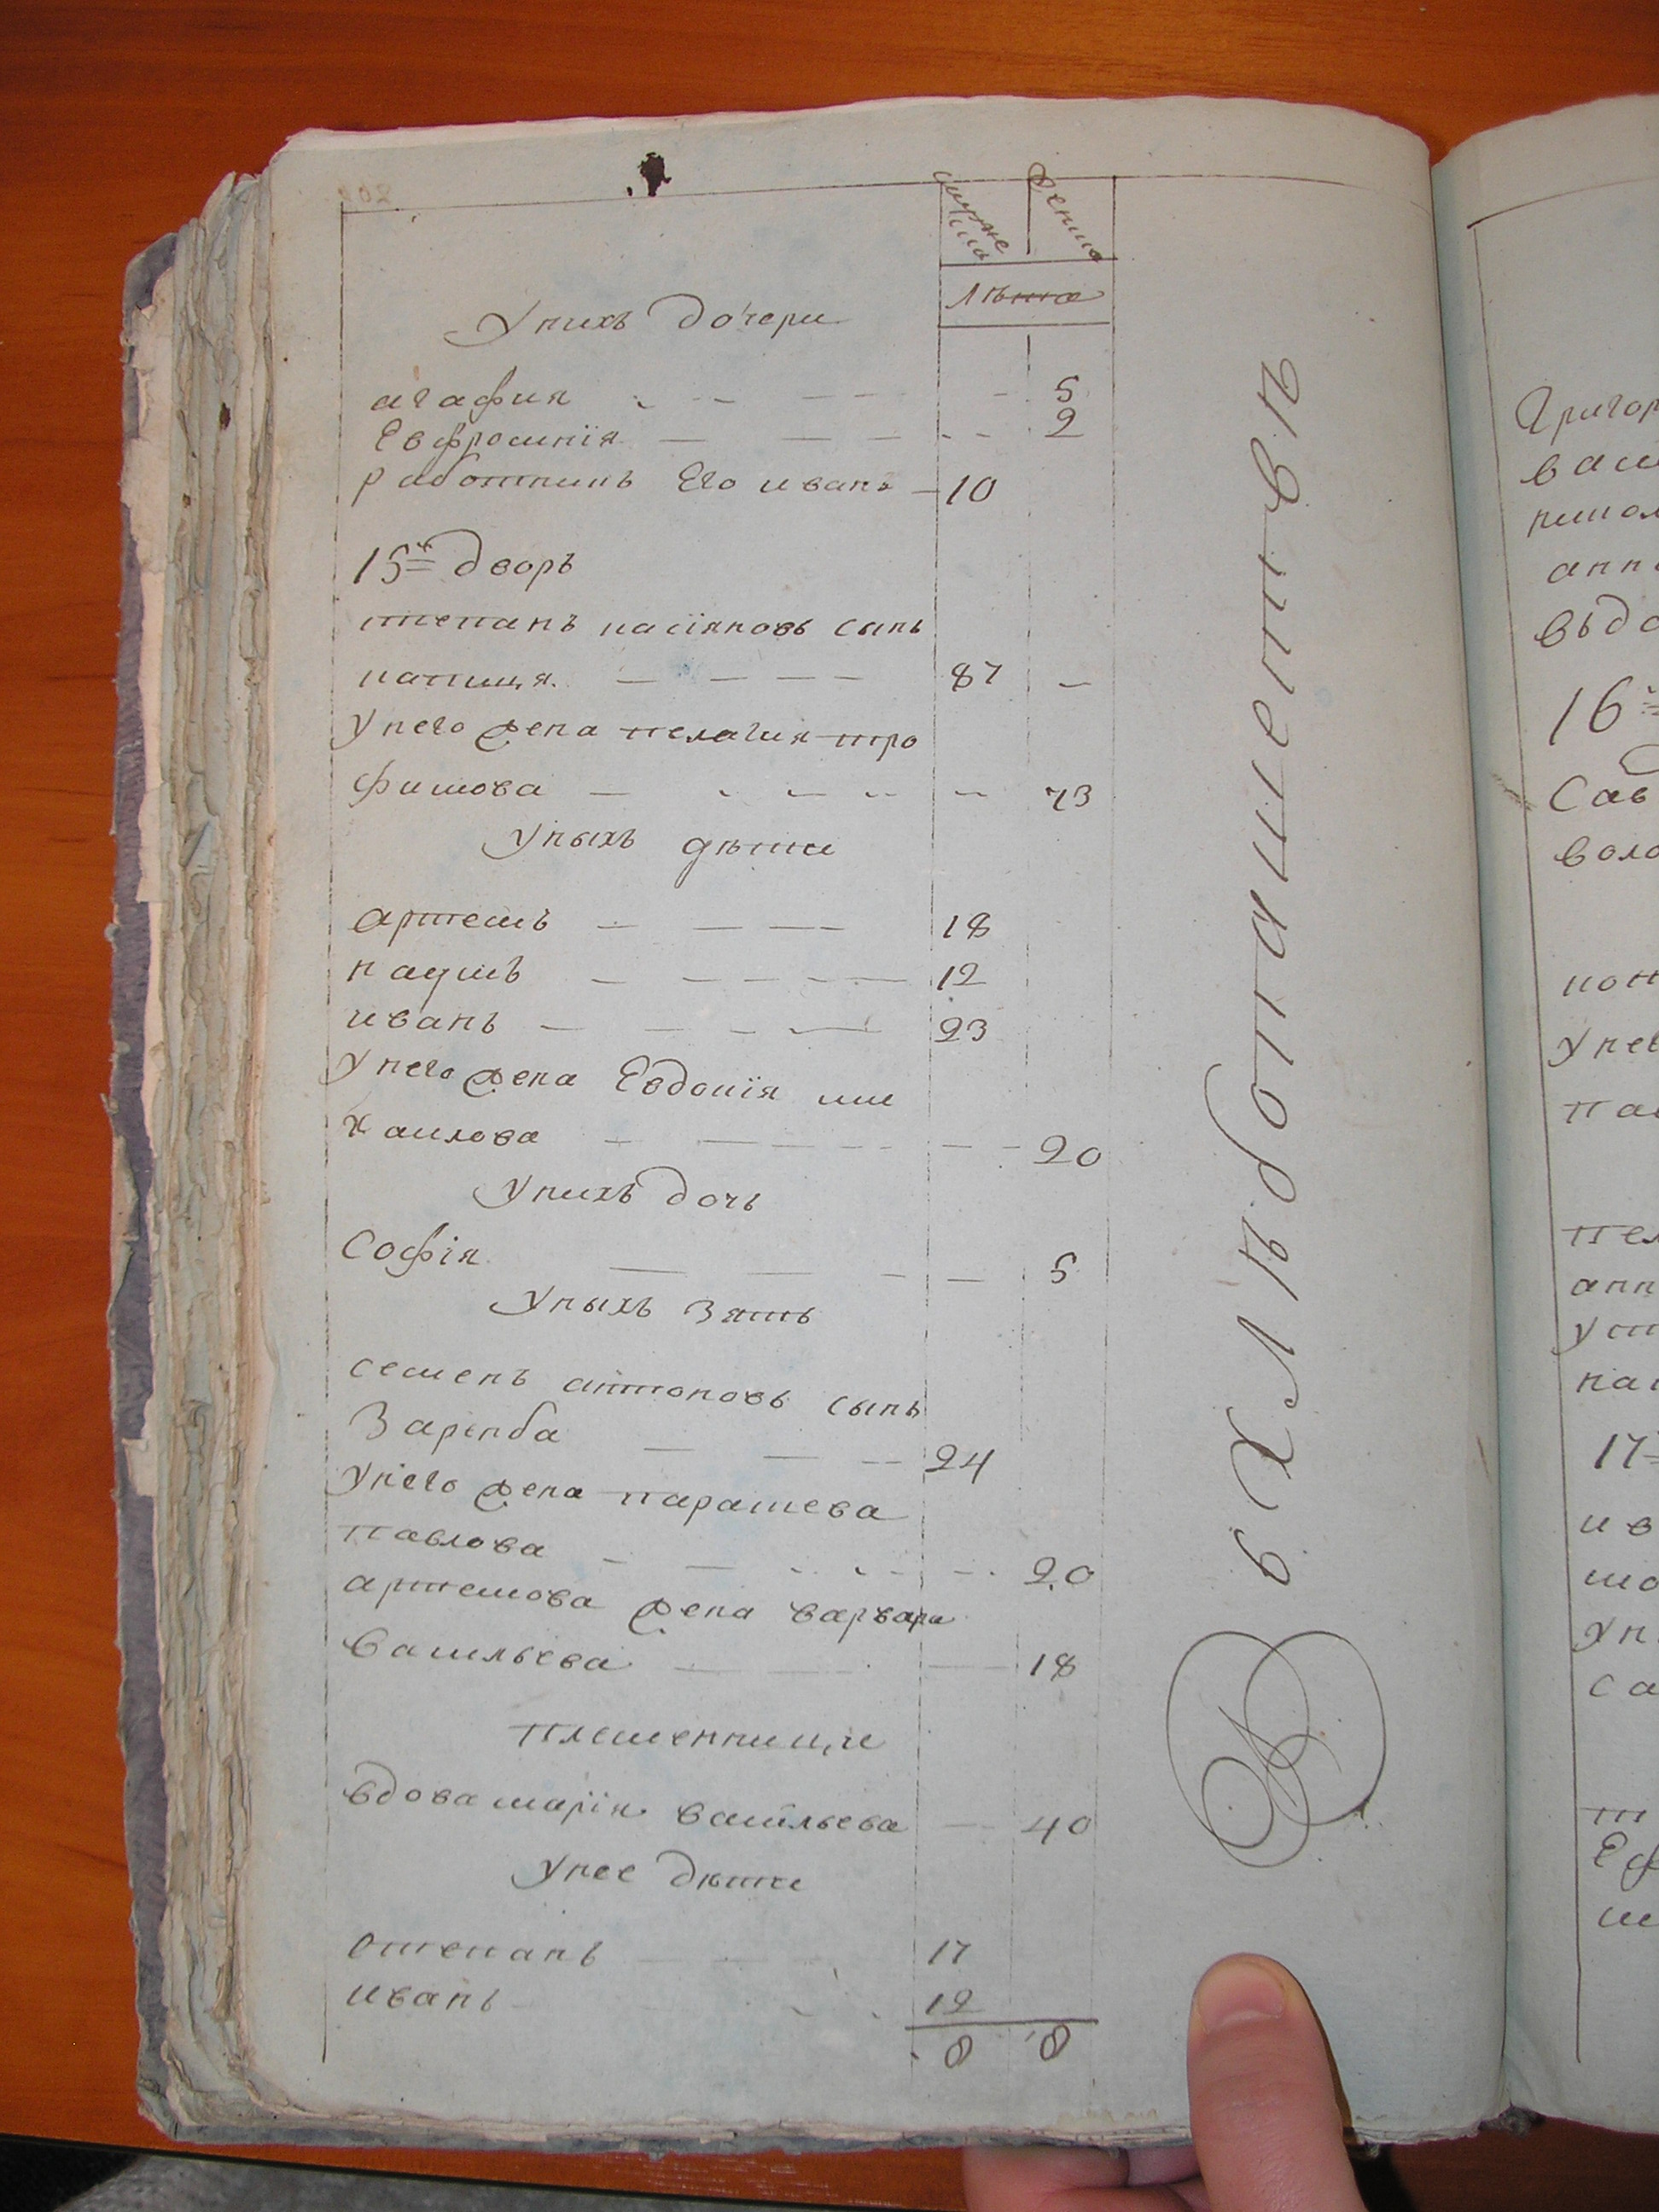 мужеска
женска
лѣта
У нихъ дочери
агафия 5
Евфросинїя 2
работникъ Его иванъ 10
15й дворъ
степанъ касїяновъ сынъ
87
У него жена пелагия тро
фимова 73
У ныхъ дѣти
артемъ 18
12
иванъ 23
У него жена Евдокїя ми
хаилова 20
У нихъ дочь
Софїя 5
У ныхъ зять
семенъ антоновъ сынъ
Зарѣмба 24
У него жена парасшева
павлова 20
артемова жена варвара
васильева 18
племенница
вдова марїя васильева 40
У нее дѣти
степанъ 17
иванъ 12
8 8
Григор
васи
анна
вьдо
16
Сав
воло
У нег
17